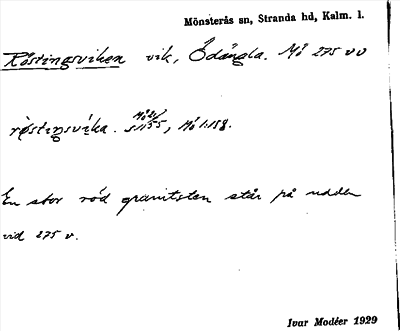 Mönsterås sn, Stranda hd, Kalm. l.
Röstingsviken vik, Ödängla. Mö 275 vv
röstingsvika. Mö 1:158.
En stor röd granitsten står på udden
vid 275 v.
Ivar Modéer 1929